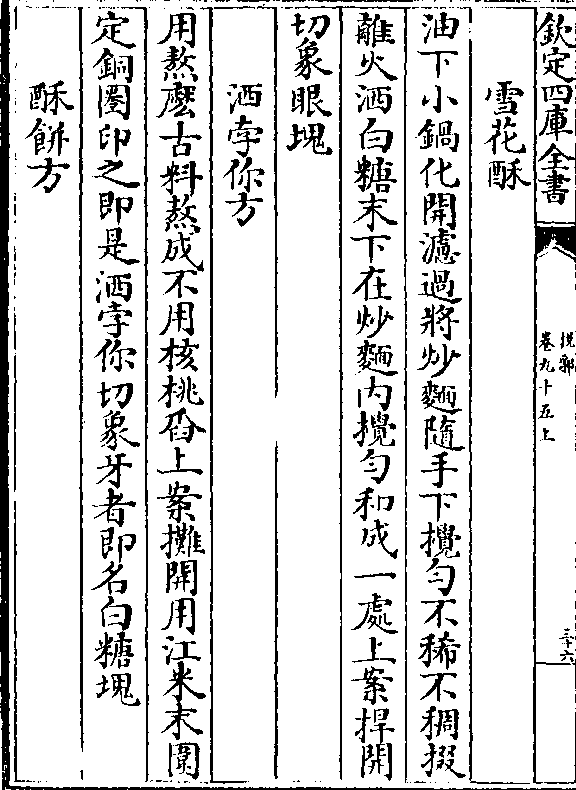 欽定四庫全書
說郛
卷九十五上
三十六
雪花酥
油下小鍋化開濾過將炒麵隨手下攪勻不稀不稠掇
離火洒白糖末下在炒麵內攪勻和成一處上案捍開
切象眼塊
洒孛你方
用熬麽古料熬成不用核桃舀上案攤開用江米末圍
定銅圏印之即是洒孛你切象牙者即名白糖塊
酥餅方